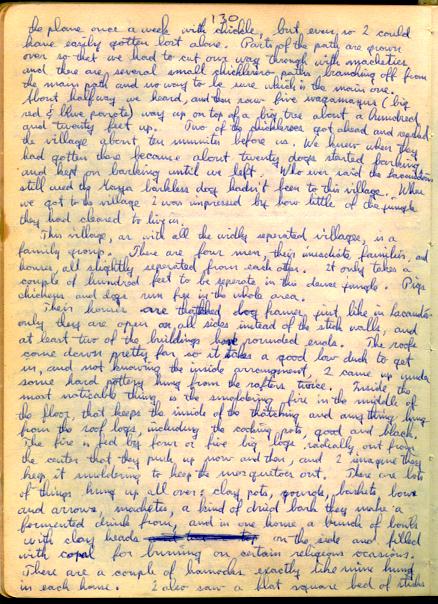 130
the plane once a week with chickle, but even so I could
have easily gotten lost alone. Parts of the path are grown
over so that we had to cut our way through with macheties
and there are several small chicklero paths branching off from
the main path and no way to be sure which is the main one.
About halfway we heard, and then saw five wagamayas (big
red & blue parrots) way up on top of a big tree about a hundred
and twenty feet up. Two of the chickleros got ahead and reached
the village about ten minuites before us. We knew when they
had gotten there because about twenty dogs started barking
and kept on barking until we left. Who ever said the Lacandons
still used the Maya barkless dog hadn't been to this village. When
we got to the village I was impressed by how little of the jungle
they had cleared to live in.
This village, as with all the widly seperated villages, is a
family group. There are four men, their imediate families, and
houses, all slightly seperated from each other. It only takes a
couple of hundred feet to be seperate in this dense jungle. Pigs
chickens and dogs run free in the whole area.
Their houses are thatched log frames just like in Lacando
only they are open on all sides instead of the stick walls, and
at least two of the buildings have rounded ends. The roofs
come down pretty far so it takes a good low duck to get
in, and not knowing the inside arrangement, I came up under
some hard pottery hung from the rafters twice. Inside the
most noticable thing is the smoldering fire in the middle of
the floor, that keeps the inside of the thatching and any thing hung
from the roof logs, including the cooking pots, good and black.
The fire is fed by four or five big logs radically out from
the center that they push up now and then, and I imagine they
keep it smuldering to keep the mosquetoes out. There are lots
of things hung up all over: clay pots, gourds, baskets bows
and arrows, machetes, a kind of dried bark they make a
formented drink from, and in one home a bunch of bowls
with clay heads on the side and filled
with copal for burning on certain religious ocasions.
There are a couple of hamocks exactly like mine hung
in each home. I also saw a flat square bed of sticks